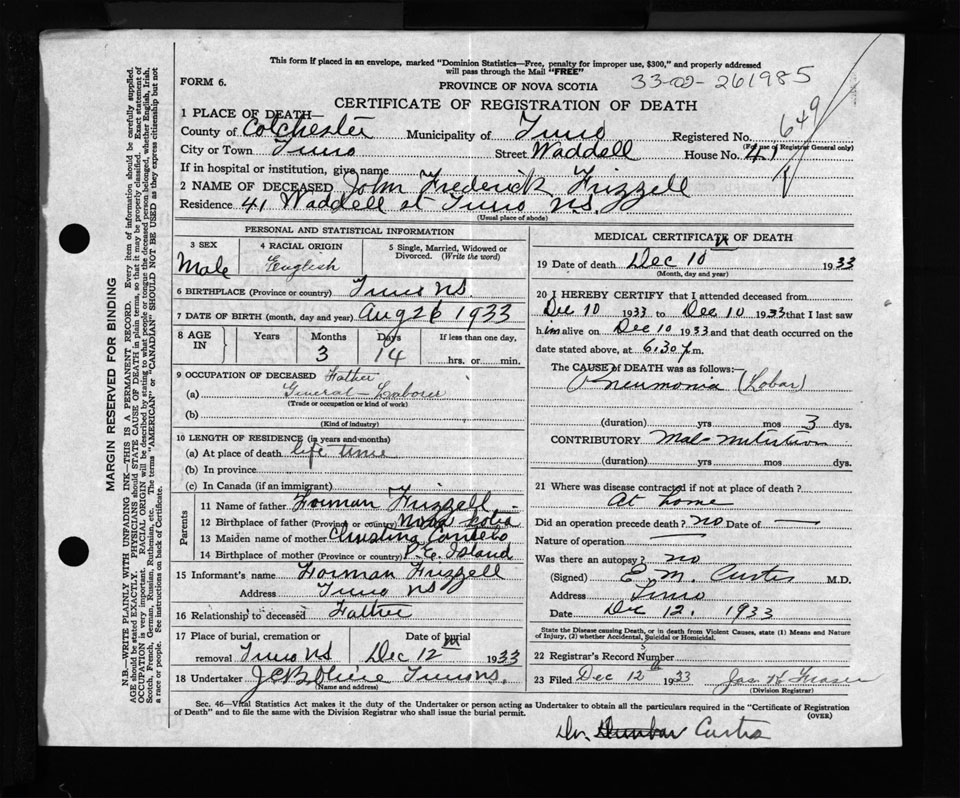 This form if placed in an envelope, marked "Dominion Statistics—Free, penalty for improper use, $300," and properly addressed
will pass through the Mail "FREE"
33-02-261985
FORM 6.
PROVINCE OF NOVA SCOTIA
CERTIFICATE OF REGISTRATION OF DEATH
649
1 PLACE OF DEATH—
County of Colchester Municipality of Truro Registered No.
(For use of Registrar General only)
City or Town Truro Street Waddell House No. 41
If in hospital or institution, give name
2 NAME OF DECEASED John Frederick Frizzell
Residence 41 Waddell st Truro N.S.
(Usual place of abode)
PERSONAL AND STATISTICAL INFORMATION
3 SEX Male
4 RACIAL ORIGIN English
5 Single, Married, Widowed or Divorced. (Write the word)
6 BIRTHPLACE (Province or country) Truro N.S.
7 DATE OF BIRTH (month, day and year) Aug 26 1933
8 AGE IN Years Months 3 Days 14 If less than one day, hrs. or min.
9 OCCUPATION OF DECEASED Father
(a) General Laborer
(Trade or occupation or kind of work)
(b)
(Kind of industry)
10 LENGTH OF RESIDENCE (in years and months)
(a) At place of death life time
(b) In province
(c) In Canada (if an immigrant)
Parents
11 Name of father Forman Frizzell
12 Birthplace of father (Province or country) Nova Scotia
13 Maiden name of mother Christina
14 Birthplace of mother (Province or country) P.E. Island
15 Informant's name Forman Frizzell
Address Truro NS
16 Relationship to deceased Father
17 Place of burial, cremation or removal Truro NS Date of burial Dec 12th 1933
18 Undertaker Truro NS.
(Name and address)
MEDICAL CERTIFICATE OF DEATH
19 Date of death Dec 10 1933
(Month, day and year)
20 I HEREBY CERTIFY that I attended deceased from
Dec 10 1933 to Dec 10 1933 that I last saw
him alive on Dec 10 1933 and that death occurred on the
date stated above, at 6.30 p.m.
The CAUSE of DEATH was as follows:—
Pneumonia (Lobar)
(duration) yrs mos 3 dys.
CONTRIBUTORY Mal-nutrition
(duration) yrs. mos. dys.
21 Where was disease contracted if not at place of death?
At home
Did an operation precede death? no Date of —
Nature of operation —
Was there an autopsy? no
(Signed) E. M. Curtis M.D.
Address Truro
Date Dec 12. 1933
State the Disease causing Death, or in death from Violent Causes, state (1) Means and Nature
of Injury, (2) whether Accidental, Suicidal or Homicidal.
22 Registrar's Record Number
23 Filed Dec 12th 1933 Jas. H. Fraser
(Division Registrar)
Sec. 46—Vital Statistics Act makes it the duty of the Undertaker or person acting as Undertaker to obtain all the particulars required in the "Certificate of Registration
of Death" and to file the same with the Division Registrar who shall issue the burial permit.
(OVER)
Dr. Dunbar Curtis
MARGIN RESERVED FOR BINDING
N.B.—WRITE PLAINLY WITH UNFADING INK—THIS IS A PERMANENT RECORD. Every item of information should be carefully supplied.
AGE should be stated EXACTLY. PHYSICIANS should STATE CAUSE OF DEATH in plain terms, so that it may be properly classified. Exact statement of
OCCUPATION is very important. RACIAL ORIGIN will be described by stating to what people or tongue the deceased person belonged, whether English, Irish,
Scotch, French, German, Russian, Ruthenian, etc. The terms "AMERICAN" or "CANADIAN" SHOULD NOT BE USED as they express citizenship but not
a race or people. See instructions on back of Certificate.